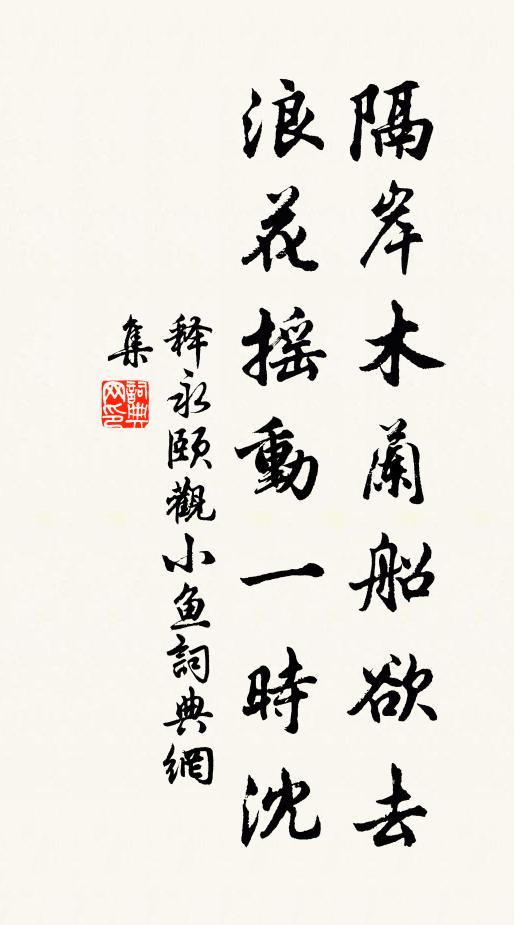 隔岸木蘭船欲去
浪花摇動一時沈
释永頤觀小鱼詞典網
集
詞典网印